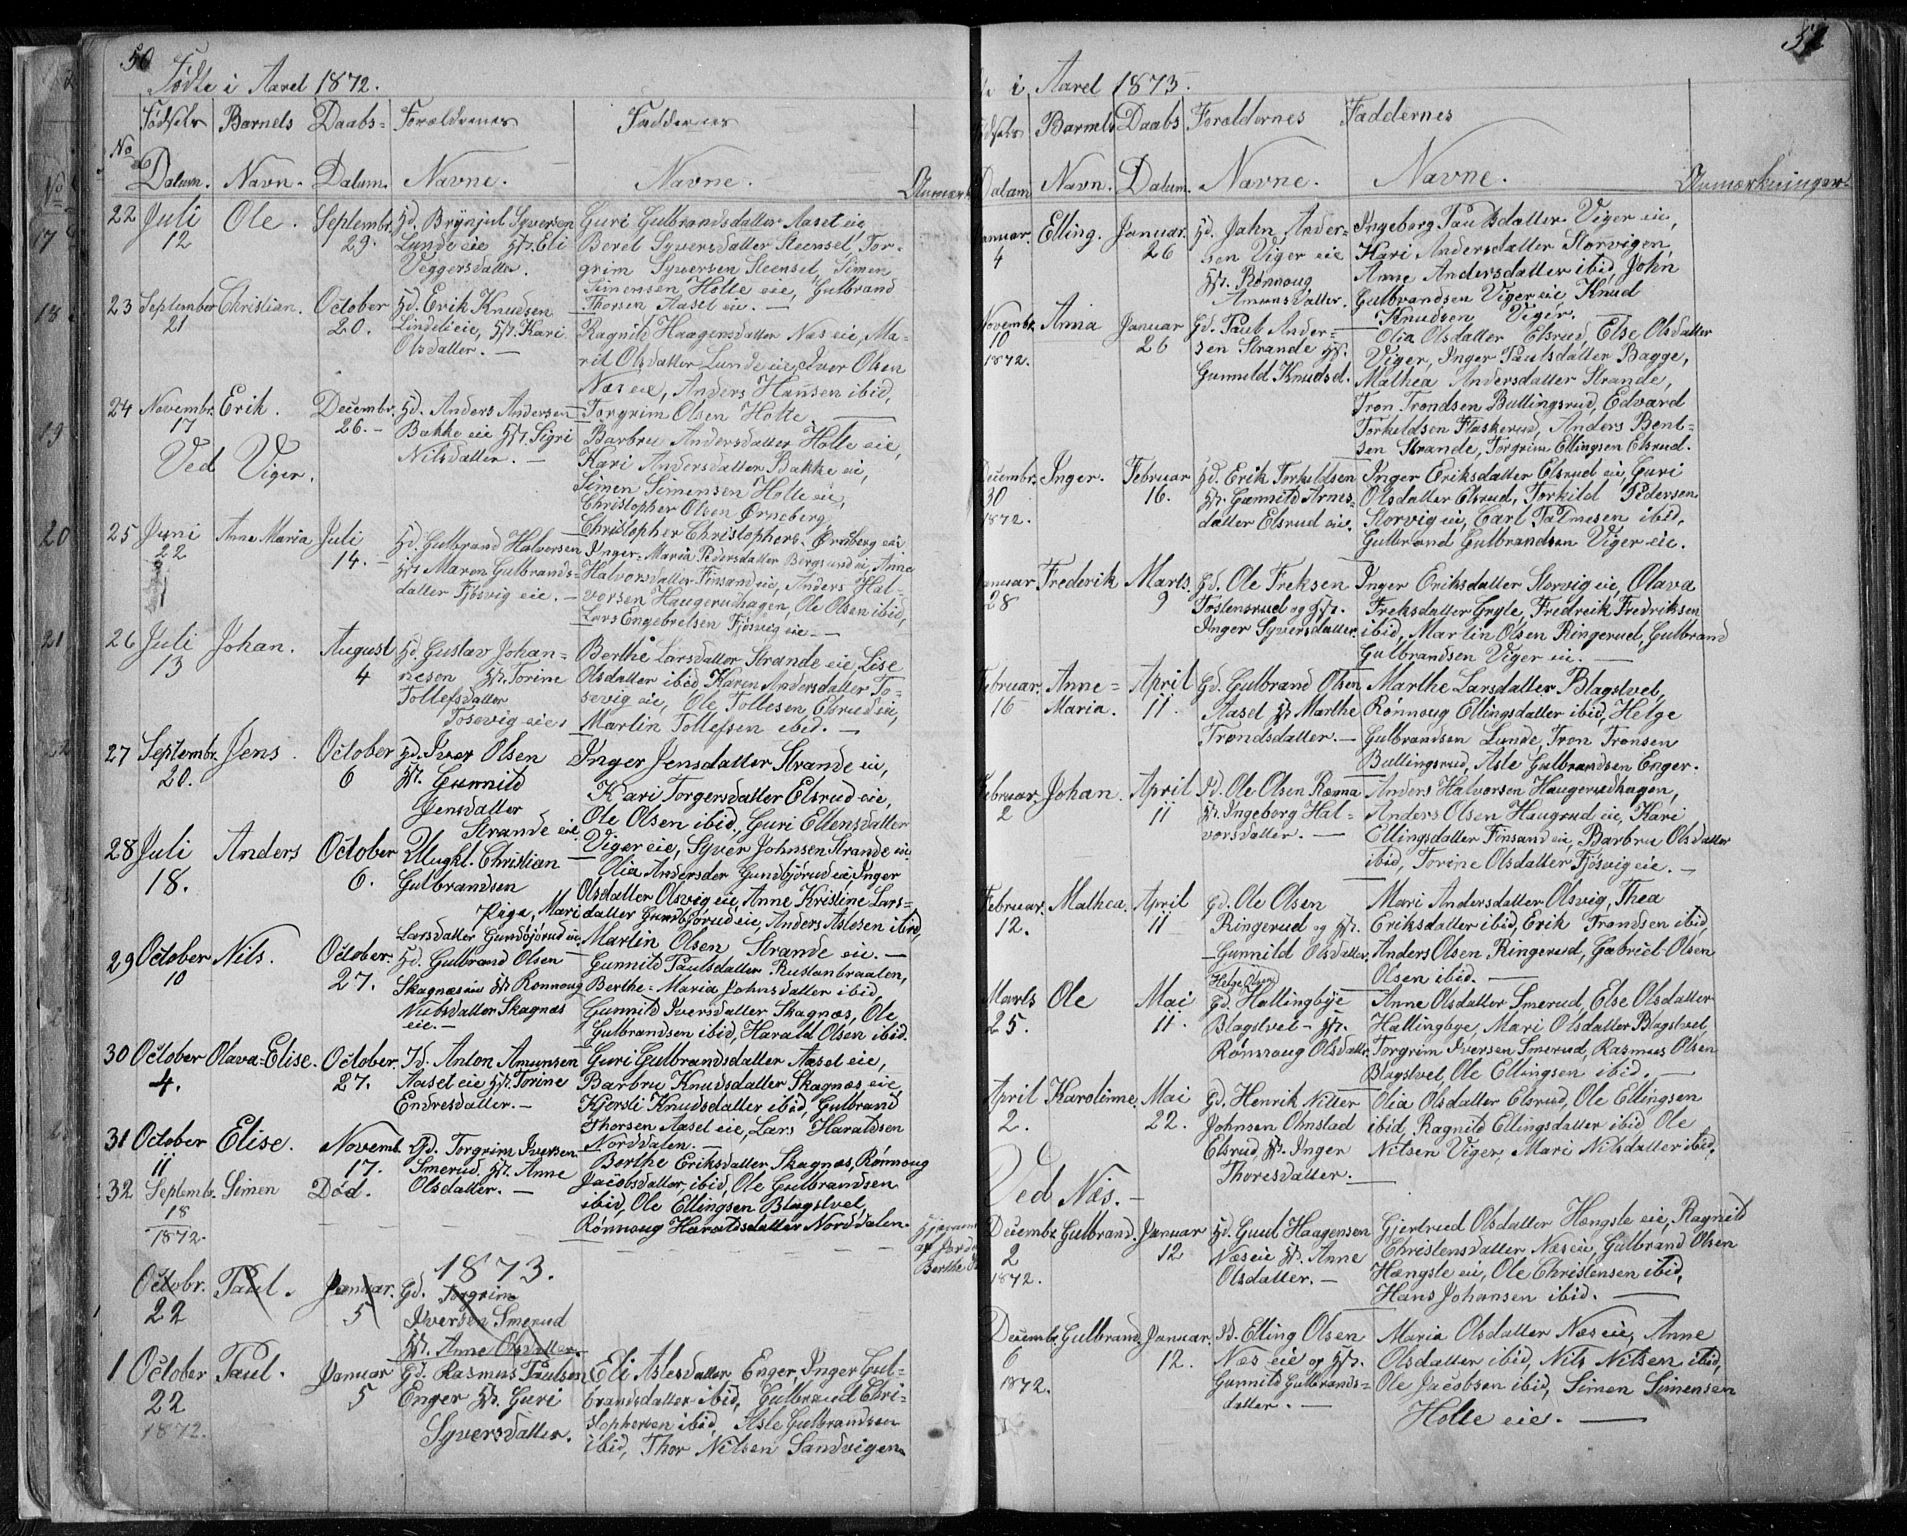 50
Fødte i Aaret 1872.
No
Fødsels Datum.
Barnets Navn.
Daabs= Datum.
Forældrenes Navne.
Faddernes Navne.
22 Juli 12
Ole.
Septembr. 29.
Brynjul Syversen
Lunde eie Eli
Veggersdatter.
Guri Gulbrandsdatter Aaset eie
Beret Syversdatter Steenset, Tor=
grim Syversen Steenset, Simen
Simensen Holte eie, Gulbrand
Thorsen Aaset eie. —
23 September 21
Christian.
October 20.
Erik Knudsen
Lindeli eie, Kari
Olsdatter. —
Ragnild Haagensdatter Næs eie, Ma=
rit Olsdatter Lunde eie, Iver Olsen
Næs eie, Anders Hansen ibid,
Torgrim Olsen Holte.
24 Novembr. 17
Erik.
Decembr. 26. –
Anders Andersen
Bakke eie Sigri
Nilsdatter. —
Barbru Andersdatter Holte eie,
Kari Andersdatter Bakke eie,
Simen Simensen Holte eie,
Christopher Olsen Ørneberg,
Christopher Christophers. Ørneberg eie
Ved Viger.
25 Juni 22
Anne Maria
Juli 14. –
Gulbrand Halvorsen
Maren Gulbrands=
datter Fjøsvig eie. —
Inger=Maria Pedersdatter Bergsund eie, Anne
Halvorsdatter Finsand eie, Anders Hal=
vorsen Haugerudhagen, Ole Olsen ibid,
Lars Engebretsen Fjøsvig eie. —
26 Juli 13
Johan.
August 4
Gustav Johan=
nesen Torine
Tollefsdatter
Tosevig eie.
Berthe Larsdatter Strande eie, Lise
Olsdatter ibid Karen Andersdatter To=
sevig eie, Ole Tollesen Elsrud eie,
Martin Tollefsen ibid. —
27 Septembr. 20.
Jens.
October 6
Iver Olsen
Gunnild
Jensdatter
Strande eie
Inger Jensdatter Strande eie,
Kari Torgersdatter Elsrud eie,
Ole Olsen ibid, Guri Ellensdatter
Viger eie, Syver Johnsen Strande eie
28 Juli 18.
Anders
October 6.
Ungkl. Christian
Gulbrandsen
Piga, Mari
Larsdatter Gundbjørud eie
Olia Andersder Gundbjørud eie Inger
Olsdatter Olsvig eie, Anne Kristine Lars=
datter Gundbjørud eie, Anders Aslesen ibid,
Martin Olsen Strande eie. —
29 October 10
Nils.
October. 27.
Gulbrand Olsen
Skagnæs eie Rønnoug
Nubsdatter Skagnæs
eie. —
Gunnild Paulsdatter Rustanbraaten,
Berthe=Maria Johnsdatter ibid
Gunnild Iversdatter Skagnæs, Ole
Gulbrandsen ibid, Harald Olsen ibid.
30 October 4.
Olava=Elise.
October. 27.
Anton Amunsen
Aaset eie Torine
Endresdatter. —
Guri Gulbrandsdatter Aaset eie,
Barbru Knudsdatter Skagnæs eie
Kjersti Knudsdatter ibid, Gulbrand
Thorsen Aaset eie, Lars Haraldsen
Norddalen. —
31 October 11
Elise.
Novemb. 17.
Gd. Torgrim Iversen
Smerud. Anne
Olsdatter. —
Berthe Eriksdatter Skagnæs, Rønnoug
Jacobsdatter ibid, Ole Gulbrandsen
ibid, Ole Ellingsen Blagstvet,
Rønnoug Haraldsdatter Norddalen.
32 Septembr. 18 1872.
Simen
Død.
1873.
Octobr. 22
Paul.
Januar. 5
Gd. Torgrim
Iversen Smerud
Anne Olsdatter.
1 October 22 1872.
Paul.
Januar 5
Gd. Rasmus Paulsen
Enger Guri
Syversdatter.
Eli Aslesdatter Enger, Inger Gul=
brandsdatter ibid, Gulbrand Chri=
stophersen ibid, Asle Gulbrandsen
ibid, Thor Nilsen Sandvigen
i Aaret 1873.
Datum
Barnets Navn.
Daabs Datum.
Forældernes Navne.
Faddernes Navne.
Anmærkninger.
Januar. 4
Elling.
Januar. 26
Jahn Ander=
sen Viger eie
Rønnoug
Amunsdatter.
Ingeborg Paulsdatter Viger eie,
Kari Andersdatter Storvigen,
Anne Andersdatter ibid, John
Gulbrandsen Viger eie, Knud
Knudsen Viger.
Novembr. 10 1872.
Anna
Januar 26
Gd. Paul Ander=
sen Strande
Gunnild Knudsd.
Olia Olsdatter Elsrud, Else Olsdatter
Viger, Inger Paulsdatter Bagge,
Mathea Andersdatter Strande,
Tron Trondsen Bullingsrud, Edvard
Torkeldsen Flaskerud, Anders Bent=
sen Strande, Torgrim Ellingsen Elsrud.
Decembr. 30 1872.
Inger.
Februar 16.
Erik Torkeldsen
Gunnild Arnes=
datter Elsrud eie.
Inger Eriksdatter Elsrud eie, Guri
Olsdatter Elsrud, Torkild Pedersen
Storvig eie, Carl Palmesen ibid,
Gulbrand Gulbrandsen Viger eie.
Januar 28
Frederik
Marts. 9
Gd. Ole Freksen
Tostensrud og
Inger Syversdatter.
Inger Eriksdatter Storvig eie, Olava
Freksdatter Gryte, Fredreik Fredriksen
ibid, Martin Olsen Ringerud, Gulbrand
Gulbrandsen Viger eie. —
Februar. 16
Anne=
Maria.
April 11.
Gd. Gulbrand Olsen
Aaset Marthe
Trondsdatter. —
Marthe Larsdatter Blagstvet,
Rønnoug Ellingsdatter ibid, Helge
Gulbrandsen Lunde, Tron Tronsen
Bullingsrud, Asle Gulbrandsen Enger.
Februar. 2
Johan.
April 11
Ole Olsen Ræma
Ingeborg Hal=
vorsdatter. —
Anders Halvorsen Haugerudhagen,
Anders Olsen Haugrud eie, Kari
Ellingsdatter Finsand eie, Barbru Olsdatter
ibid, Torine Olsdatter Fjøsvig eie. —
Februar. 12.
Mathea.
April 11
Gd. Ole Olsen
Ringerud og
Gunnild Olsdatter.
Mari Andersdatter Olsvig, Thea
Eriksdatter ibid, Erik Trondsen ibid,
Anders Olsen Ringerud, Gabriel Olsen
Olsen ibid. —
Marts 25.
Ole
Mai 11.
Helge Olsen
Gd. Hallingbye
Blagstvet –
Rønnoug Olsdatter.
Anne Olsdatter Smerud, Else Olsdatter
Hallingbye, Mari Olsdatter Blagstvet,
Torgrim Iversen Smerud, Rasmus Olsen
Blagstvet, Ole Ellingsen ibid. —
April 2.
Karolinne.
Mai 22.
Gd. Henrik Nitter
Johnsen Omstad
Elsrud, Inger
Thoresdatter. —
Olia Olsdatter Elsrud, Ole Ellingsen
ibid, Ragnild Ellingsdatter ibid Ole
Nilsen Viger, Mari Nilsdatter ibid.
Ved Næs. —
Decembr. 2 1872.
Gulbrand.
Januar 12.
Guul Haagensen
Næs eie Anne
Olsdatter. —
Gjertrud Olsdatter Hængsle eie, Ragnild
Christensdatter Næs eie, Gulbrand Olsen
Hængsle eie, Ole Christensen ibid,
Hans Johansen ibid. —
Decembr. 6 1872.
Gulbrand.
Januar. 12.
Elling Olsen
Næs eie og
Gunnild Gulbrands=
datter. —
Maria Olsdatter Næs eie, Anne
Olsdatter ibid, Nils Nilsen ibid,
Ole Jacobsen ibid, Simen Simensen
Holte eie. —